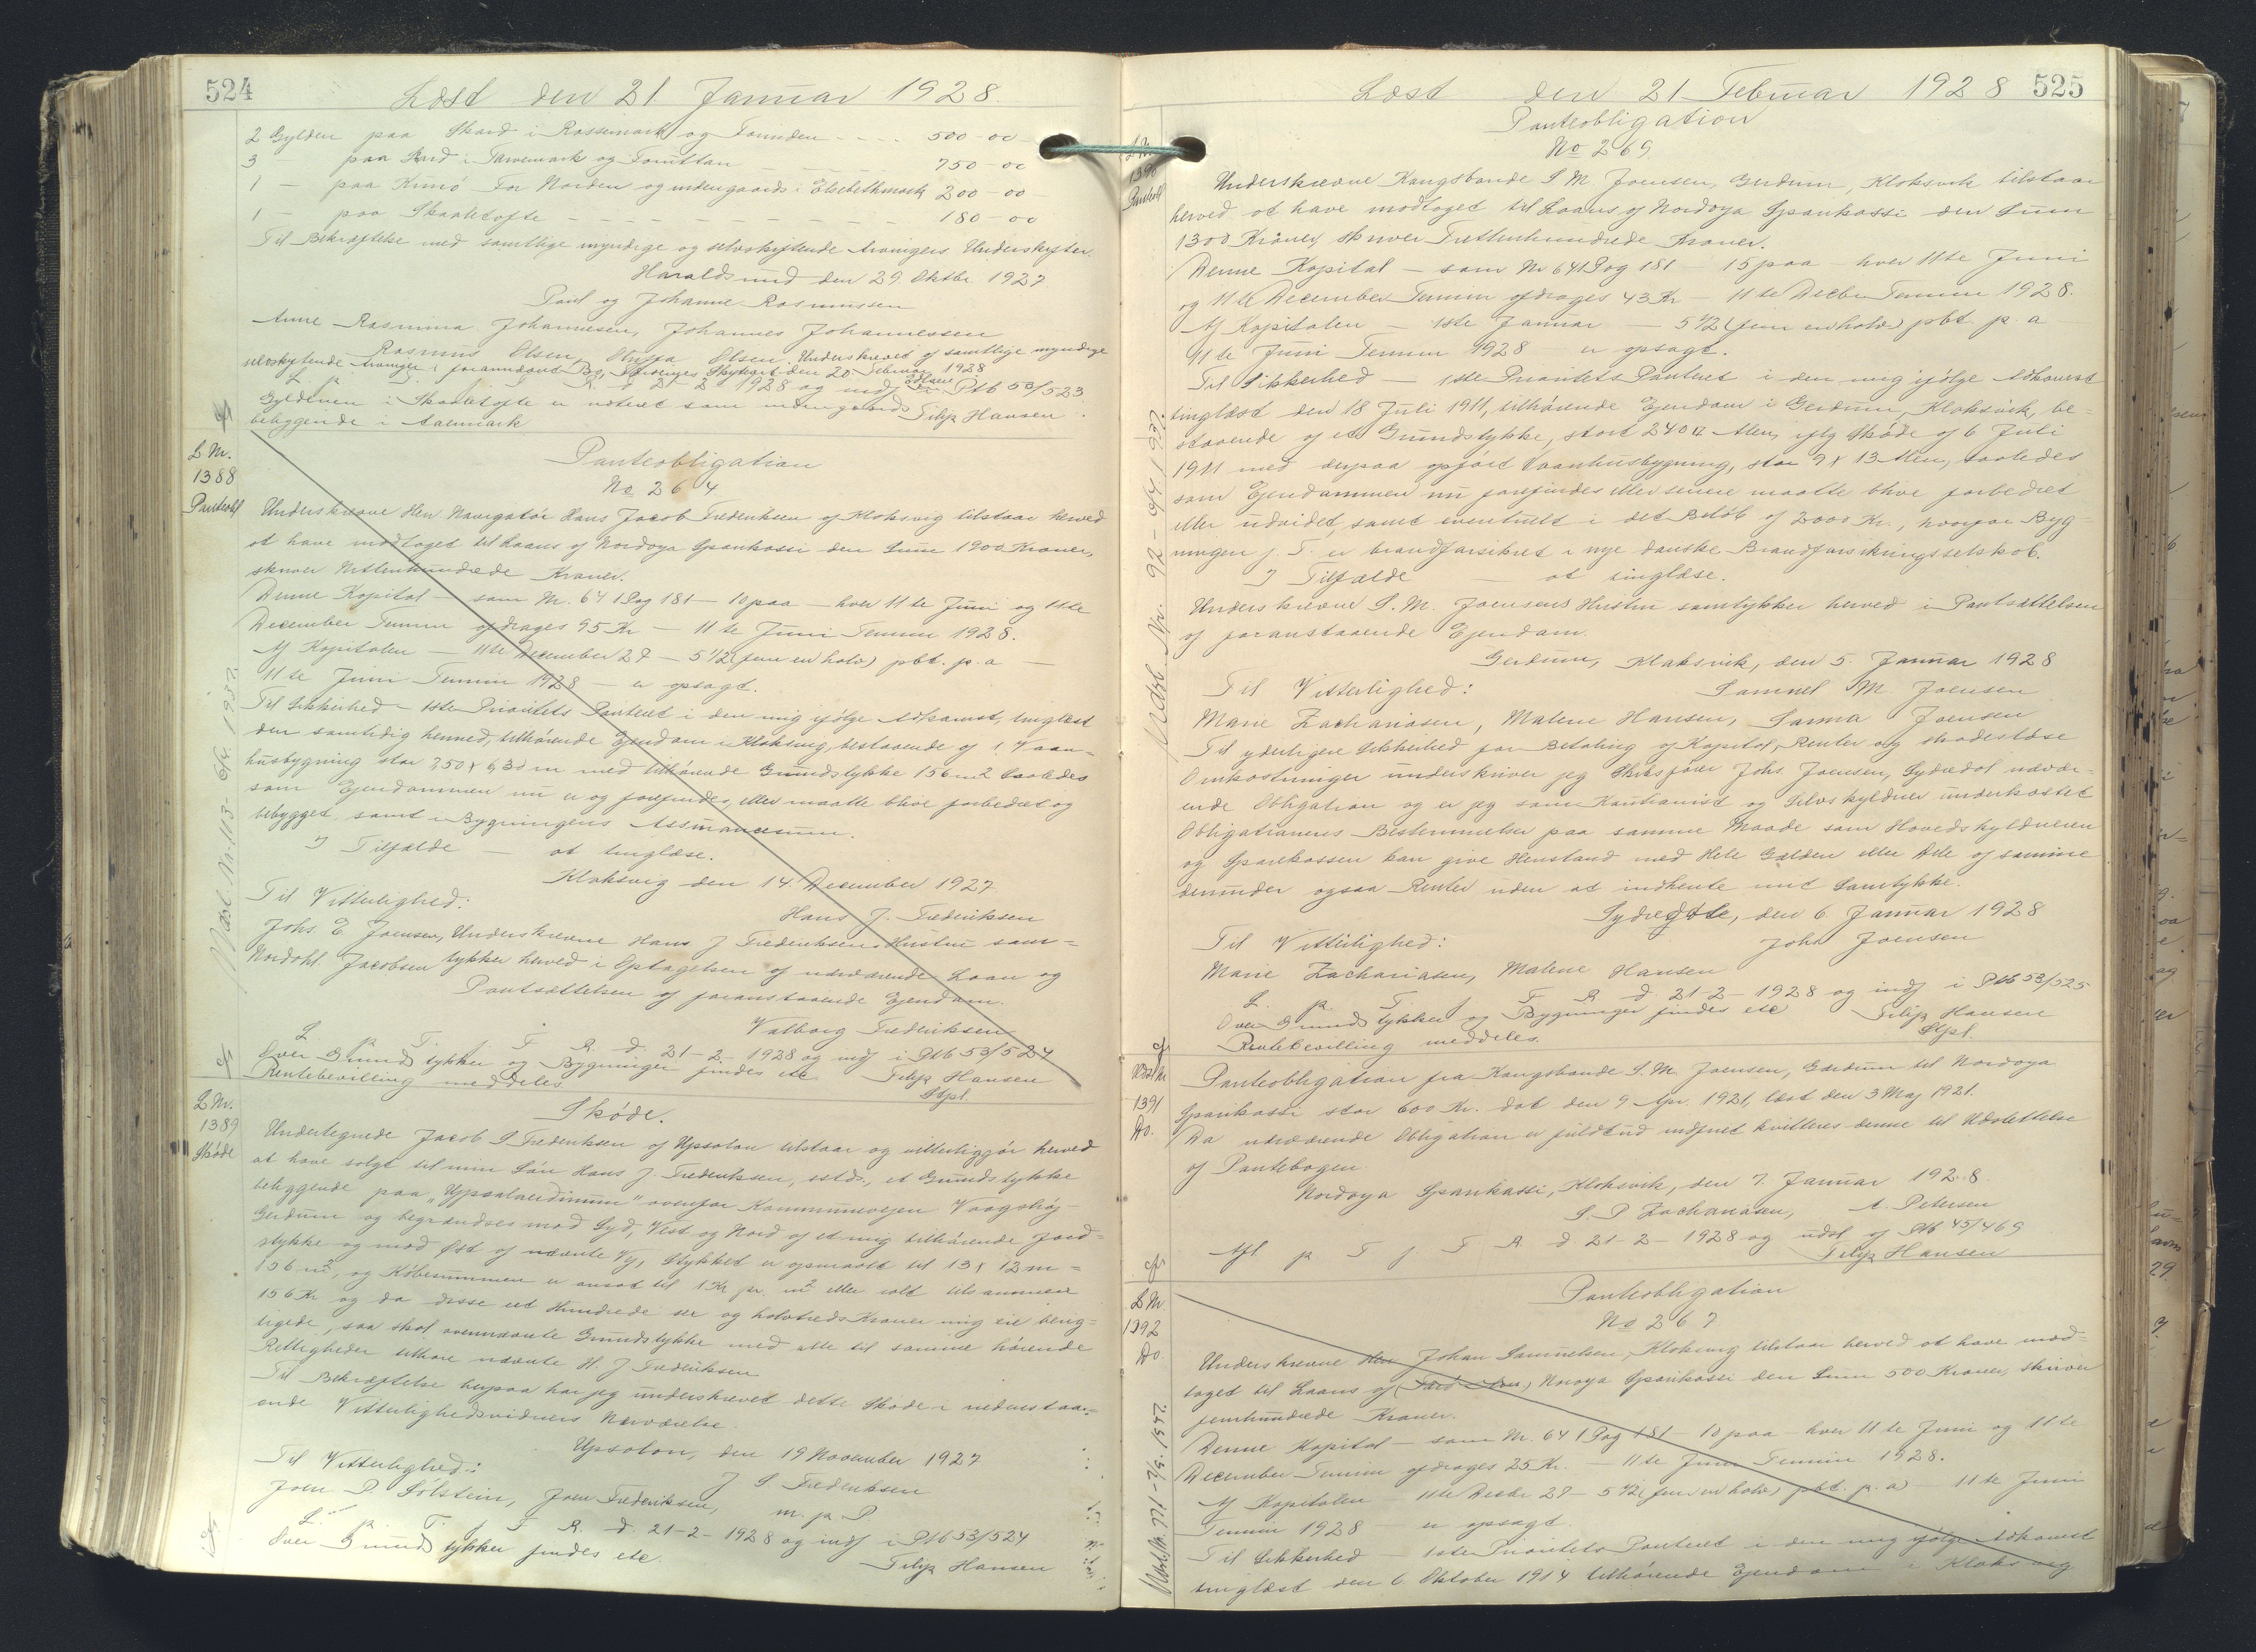 524
Læst den 21 Januar 1928.
2 Gylden paa Skard i Rossemark og Tounden - - 500-00
3 - paa Skard i Tarvemark og 750-00
1 - paa Kunö For Norden og indengaards i Elsebethmark 200-00
1 - paa Skaaletofte - - - - - - - - 180-00
Til Bekræftelse med samtlige myndige og selvskyftende Arvingers Underskrifter.
Haraldssund den 29. Oktbr. 1927
Poul og Johanne Rasmussen
Anne Rasmina Johannesen, Johannes Johannessen
Rasmus Olsen, Olsen. Underskrevet af samtlige myndige
selvskyftende Arvinger i foranstaaende Bo, Norderøernes Skifteret den 20 Februar 1928
L. p. T. f. F. R. d. 21-2 1928 og indf i Ptb 53/523.
Gyldenen i Skaaletofte er noteret som indengaards
beliggende i Aarmark Filip Hansen
L Nr.
1388
Panteobl
Panteobligation
No 264
Underskrevne Herr Navigatör Hans Jacob Frederiksen af Kloksvig tilstaar herved
at have modtaget til Laans af Nordoya Sparikassi den Sum 1900 Kroner,
skriver Nittenhundrede Kroner.
Denne Kapital - som Nr. 641 S og 181 - 10 paa - hver 11te Juni og 11te
December Termin afdrages 95 Kr - 11te Juni Termin 1928.
Af Kapitalen - 11te December 27 - 5 1/2 (fem en halv) pct. p. a -
11te Juni Termin 1928 - er opsagt.
Til Sikkerhed - 1ste Prioritets Panteret i den mig ifölge Adkomst, tinglæst
den samtidig hermed, tilhörende Ejendom i Kloksvig, bestaaende af 1 Vaan-
husbygning stor 7,50 x 6,30 m med tilhörende Grundstykke 156 m2 saaledes
som Ejendommen nu er og forefindes, eller maatte blive forbedret og
bebygget samt i Bygningens Assurancesum.
I Tilfælde - at tinglæse.
Kloksvig den 14. December 1927.
Til Vitterlighed: Hans J. Frederiksen
Johs. E Joensen, Underskrevne Hans J Frederiksens Hustru sam-
Nordahl. Jacobsen tykker herved i Optagelsen af nærværende Laan og
Pantsættelsen af foranstaaende Ejendom.
Valborg Frederiksen
L p. T. f. F R. d. 21-2-1928 og indf i Ptb 53/524
Over Grundstykker og Bygninger findes etc Filip Hansen
Rentebevilling meddeles. Stpl.
Udsl. Nr. 113- 1937.
L Nr.
1389
Sköde
Sköde.
Undertegnede Jacob S Frederiksen af Uppsalon tilstaar og vitterliggjör herved
at have solgt til min Sön Hans J. Frederiksen, estds., et Grundstykke
beliggende paa "Uppsalaerdinum" ovenfor Kommunevejen Vaagshöj-
Gerdum og begrændses mod Syd, Vest og Nord af et mig tilhörende Jord-
stykke og mod Øst af nævnte Vej, Stykket er opmaalt til 13 x 12 m =
156 m2, og Købesummen er ansat til 1 Kr pr. m2 eller ialt tilsammen
156 Kr og da disse eet Hundrede sex og halvtreds Kroner mig ere berig-
tigede, saa skal ovennævnte Grundstykke med alle til samme hörende
Rettigheder tilhöre nævnte H. J Frederiksen
Til Bekræftelse herpaa har jeg underskrevet dette Sköde i nedenstaa-
ende Vitterlighedsvidners Nærværelse.
Upsalon, den 19 November 1927
Til Vitterlighed: J S Frederiksen
Joen D. Sölstein, Joen Frederiksen, m. p. P.
L. p. T. f. F R. d. 21-2-1928 og indf i Ptb 53/524
Over Grundstykker findes etc. Filip Hansen
525
Læst den 21 Februar 1928
Panteobligation
No 269
L Nr
1390
Panteobl
Underskrevne Kongsbonde S M. Joensen, Gerdum, Kloksvik tilstaar
herved at have modtaget til Laans af Nordoya Sparikassi den Sum
1300 Kroner, skriver Trettenhundrede Kroner.
Denne Kapital - som Nr 641 S og 181 - 15 paa - hver 11te Juni
og 11te December Termin afdrages 43 Kr - 11te Decbr Termin 1928.
Af Kapitalen - 1ste Januar - 5 1/2 (fem en halv) pct. p. a
11te Juni Termin 1928 - er opsagt.
Til Sikkerhed - 1ste Prioritets Panteret i den mig ifölge Adkomst
tinglæst den 18 Juli 1911, tilhörende Ejendom i Gerdum, Kloksvik, be-
staaende af et Grundstykke, stort 240 □ Alen, iflg Sköde af 6 Juli
1911 med derpaa opfört Vaanhusbygning, stor 9 x 13 Alen, saaledes
som Ejendommen nu forefindes eller senere maatte blive forbedret
eller udvidet, samt eventuelt i det Belöb af 2000 Kr., hvorfor Byg-
ningen f. T. er brandforsikret i nye danske Brandforsikringsselskab.
I Tilfælde - at tinglæse.
Underskrevne S. M. Joensens Hustru samtykker herved i Pantsættelsen
af foranstaaende Ejendom.
Gerdum, Klaksvik, den 5. Januar 1928
Til Vitterlighed: Samuel M. Joensen
Marie Zachariasen, Malene Hansen, Sanna Joensen
Til yderligere Sikkerhed for Betaling af Kapital, Renter og skadeslöse
Omkostninger underskriver jeg Skibsförer Johs. Joensen, Sydredal nærvær-
ende Obligation og er jeg som Kautionist og Selvskyldner underkastet
Obligationens Bestemmelser paa samme Maade som Hovedskyldneren
og Sparekassen kan give Henstand med Hele Gælden eller Dele af samme
derunder ogsaa Renter uden at indhente mit Samtykke.
Sydregöte, den 6. Januar 1928
Til Vitterlighed: Johs Joensen
Marie Zachariasen, Malene Hansen
L. p. T. f. F R d. 21-2-1928 og indf i Ptb 53/525
Over Grundstykker og Bygninger findes etc Filip Hansen
Rentebevilling meddeles. Stpl.
Udsl. Nr. 92- 1937.
1391
Do.
Panteobligation fra Kongsbonde S. M. Joensen, Gerdum til Nordoya
Sparikassi stor 600 Kr. dat den 9 Apr. 1921, læst den 3 Maj 1921.
Da nærværende Obligation er fuldtud indfriet kvitteres denne til Udslettelse
af Pantebogen.
Nordoya Sparikassi, Kloksvik, den 7. Januar 1928
S. P Zachariasen, A. Petersen
Afl. p T f F R d. 21-2-1928 og udsl af Ptb 45/469
Filip Hansen
L Nr.
1392
Do.
Panteobligation
No 267
Underskrevne Johan Samuelsen, Kloksvig tilstaar herved at have mod-
taget til Laans af Noroya Sparikassi den Sum 500 Kroner, skriver
femhundrede Kroner.
Denne Kapital - som Nr. 641 S og 181 - 10 paa - hver 11te Juni og 11te
December Termin afdrages 25 Kr. - 11te Juni Termin 1928.
Af Kapitalen - 11te Decbr 27 - 5 1/2 (fem en halv) pct. p. a) - 11te Juni
Termin 1928 - er opsagt.
Til Sikkerhed - 1ste Prioritets Panteret i den mig ifölge Adkomst
tinglæst den 6 Oktober 1914 tilhörende Ejendom i Kloksvig